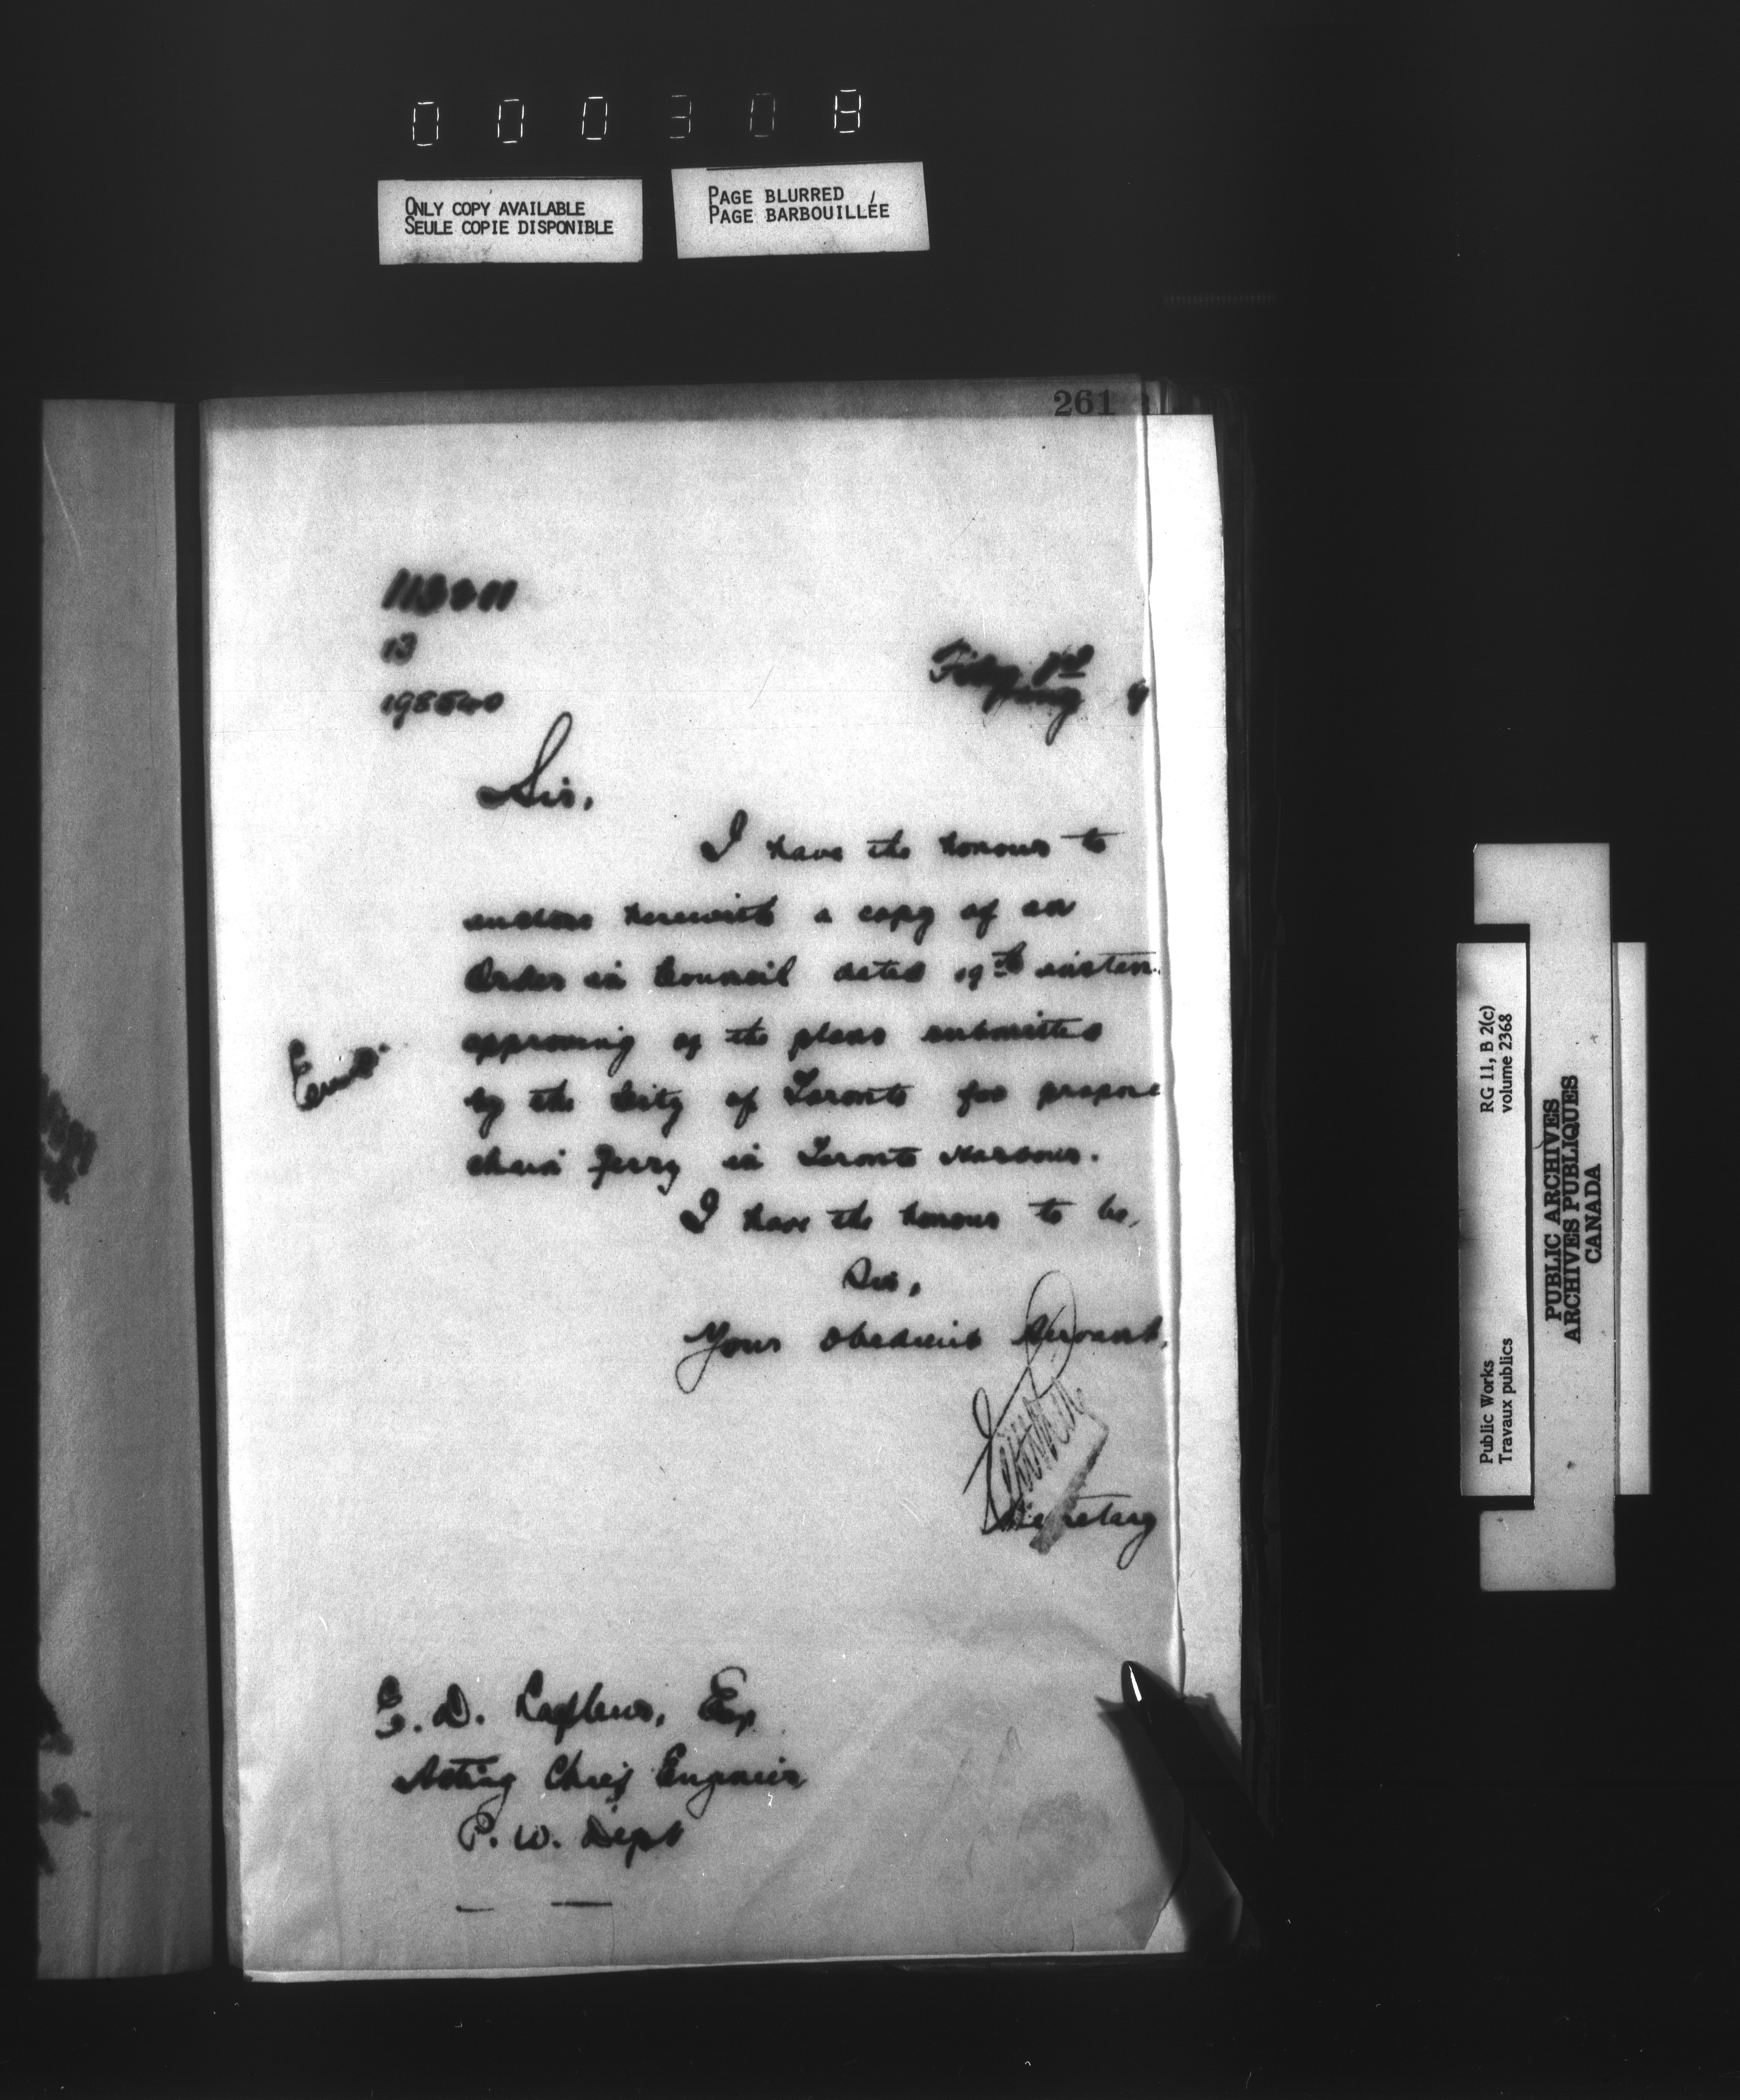 000308
ONLY COPY AVAILABLE
SEULE COPIE DISPONIBLE
PAGE BLURRED
PAGE BARBOUILLÉE
261
13
Sir,
I have the honour to
enclose herewith a copy of an
Order in Council dated 19th instan
approving of the plans submitted
by the City of Toronto for propose
chain ferry in Toronto Harbour.
I have the honour to be,
Sir,
Your obedient Servant,
Secretary
D. Lafleur, Esq
Acting Chief Engineer
P. W. Dept
RG 11, B 2(c)
volume 2368
Public Works
Travaux publics
PUBLIC ARCHIVES
ARCHIVES PUBLIQUES
CANADA